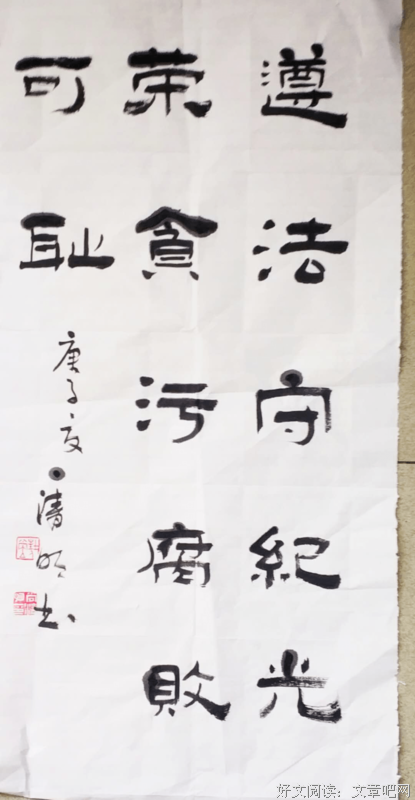 遵法守紀光
荣貪污腐敗
可耻
庚子夏清明书
好文阅读：文章吧网